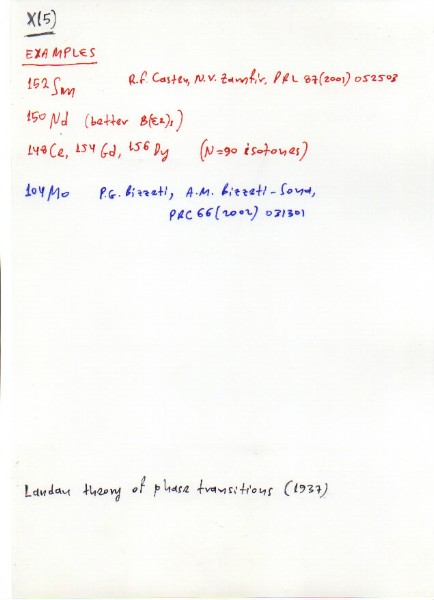 X(5)
EXAMPLES
152 Sm R.F. Casten, N.V. Zamfir, PRL 87(2001) 052503
150 Nd (better B(E2)s)
148 Ce, 154 Gd, 156 Dy (N=90 isotones)
104 Mo P.G. Bizzeti, A.M. Bizzeti-Sona,
PRC 66(2002) 031301
Landau theory of phase transitions (1937)